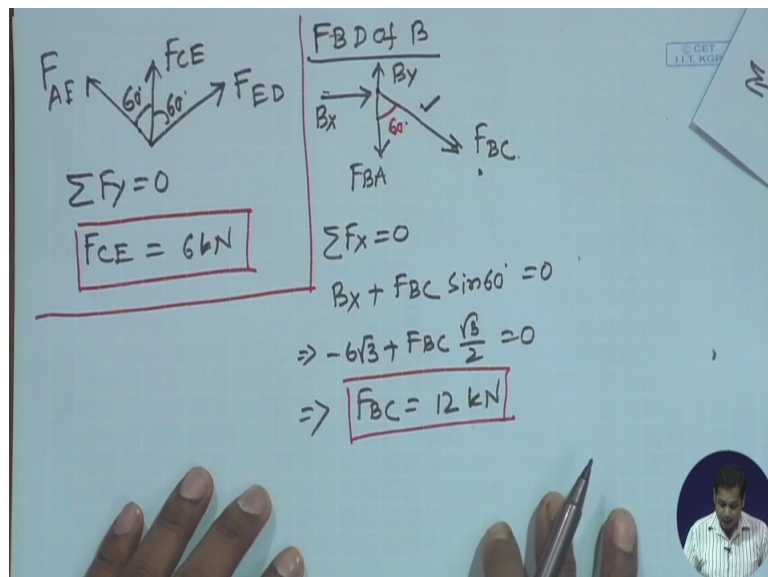 F AE
FCE
FED
60°
60°
ΣFy=0
FCE = 6kN
FBD of B
By
Bx
60°
FBC
FBA
ΣFx=0
Bx + FBC Sin60° =0
⇒ -6√3 + FBC √3/2 =0
⇒ FBC = 12 kN
© CET
I.I.T. KGP